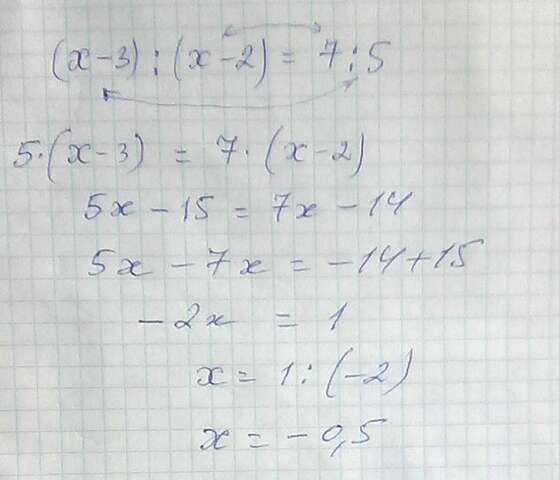 (x-3):(x-2) = 7:5
5·(x-3) = 7·(x-2)
5x-15 = 7x-14
5x-7x = -14+15
-2x = 1
x = 1:(-2)
x = -0,5